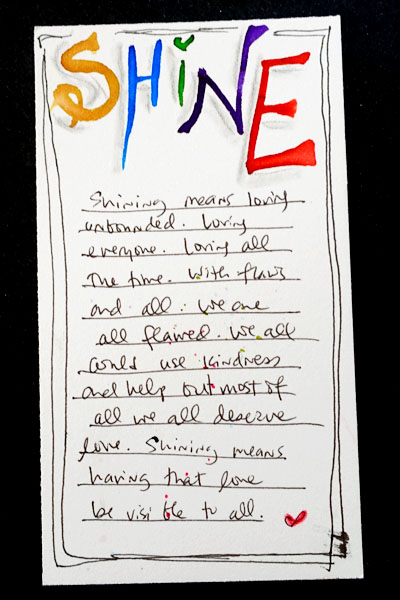 SHiNE
Shining means loving
unbounded. Loving
everyone. Loving all
The time. With flaws
and all. We are
all flawed. We all
could use kindness
and help but most of
all we all deserve
love. Shining means
having that love
be visible to all.